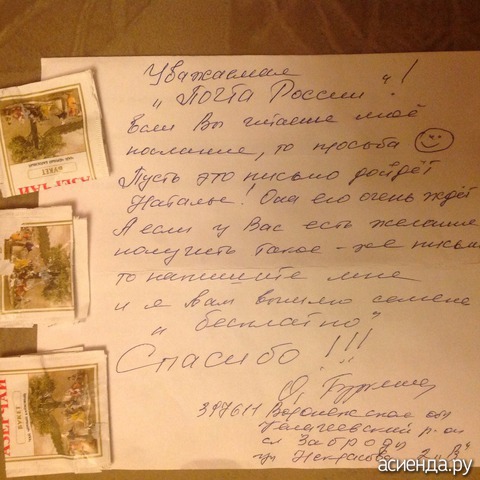 Уважаемая
„Почта России“!
Если Вы читаете моё
послание, то просьба
Пусть это письмо дойдёт
Наталье! Она его очень ждёт
А если у Вас есть желание
получить такое-же письмо
то напишите мне
и я Вам вышлю семена
„бесплатно“
Спасибо!!!
397611 Воронежская обл
Калачеевский р-он
сл Заброды
ул Некрасова 2 „В“
АЗЕРЧАЙ
БУКЕТ
АЗЕРЧАЙ
БУКЕТ
асиенда.ру